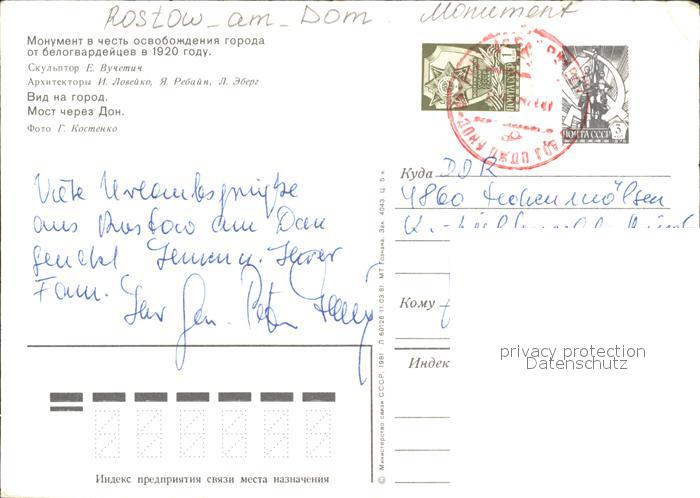 Rostow-am-Dom. Monument
Монумент в честь освобождения города
от белогвардейцев в 1920 году.
Скульптор Е. Вучетич
Архитекторы И. Ловейко, Я. Ребайн, Л. Эберг
Вид на город.
Мост через Дон.
Фото Г. Костенко
ПОЧТА СССР
3
Куда DDR
4860 Hohenmölsen
Viele Urlaubsgrüße
aus Rostow am Don
sendet Ihnen u. Ihrer
Fam.
Ihr Gen. Peter
Кому
privacy protection
Datenschutz
Индекс
© Министерство связи СССР. 1981 Л 60126 11.03.81. МТ Гознака. Зак. 4043. Ц. 5 к.
Индекс предприятия связи места назначения